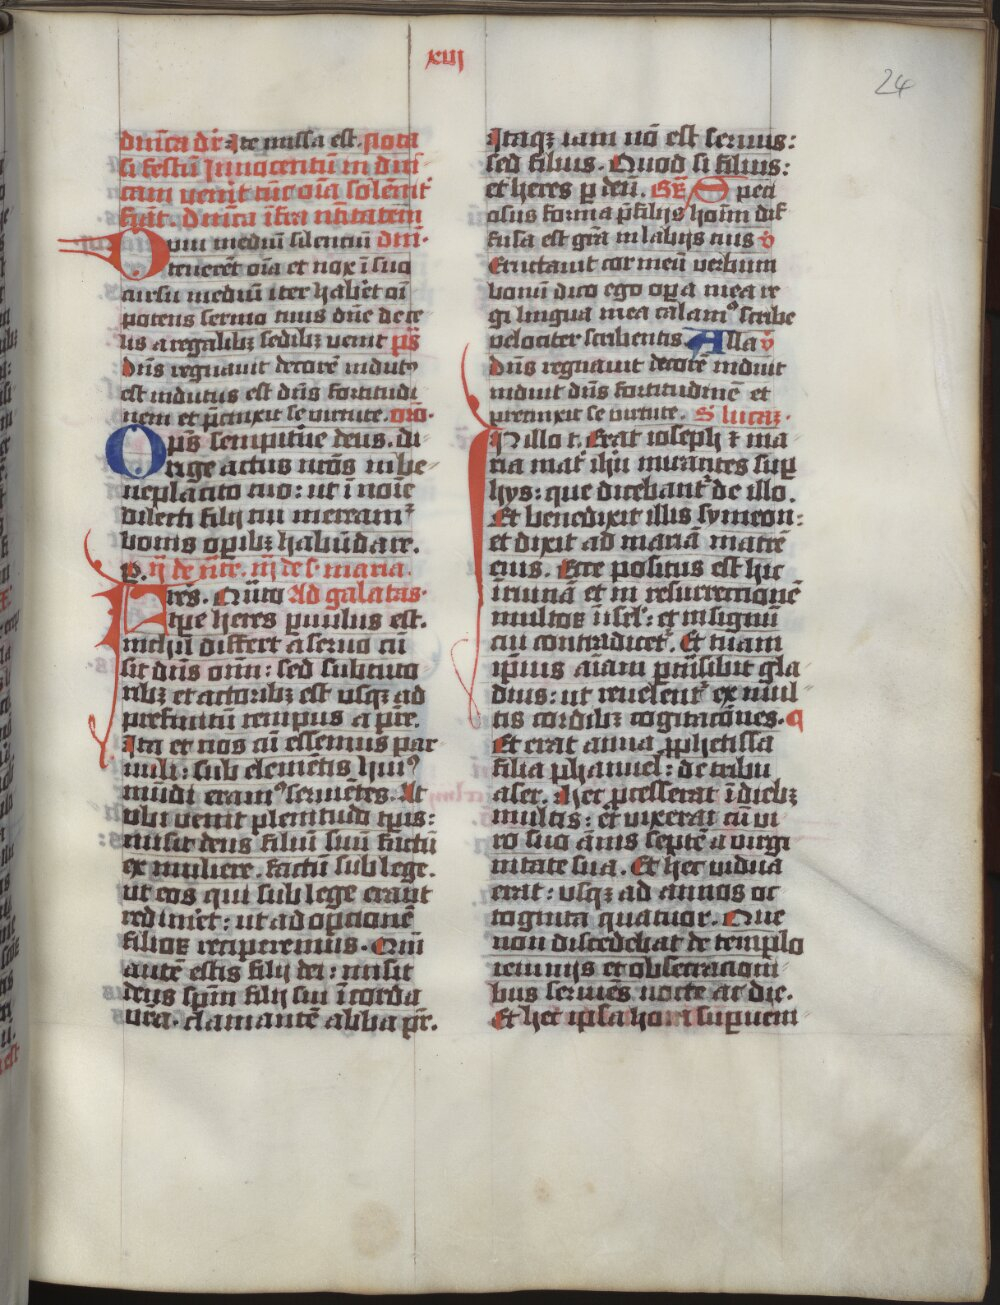 xiij
24
dnica dr Ite missa est. Nota
si festū Innocentū in dni
cam venit tūc oīa solēnit
fiāt. Dnica ifra nītatem
Dum mediū silenciū dni.
teneret oīa et nox ī suo
cursu mediū iter habēt oī
potens sermo tuus dne de ce
lis a regalibꝫ sedibꝫ venit ps
Dns regnauit decorē indutꝰ
est indutus est dns fortitudi
nem et p̄cinxit se virtute. oro.
Omps sempitne deus. di
rige actus nros in be
neplacito tuo: ut ī noīe
dilecti filij tui meream̄
bonis opibꝫ habūdare.
p. ij de nīte. iij de s. maria.
Fres. Quāto Ad galatas.
tpe heres puulus est.
nichil differt a seruo cū
sit dns oīm: sed sub tuto
ribꝫ et actoribꝫ est vsqꝫ ad
prefinitū tempus a pre.
Ita et nos cū essemus par
uuli: sub elemētis huiꝰ
mūdi eramꝰ seruētes. At
vbi venit plenitudo tpis:
misit deus filiū suū factū
ex muliere. factū sub lege.
ut eos qui sub lege erant
redimēt: ut ad optionē
filioꝝ reciperemus. Qm̄
autē estis filij dei: misit
deus spm filij sui ī corda
vra. clamantē abba pr.
Itaqꝫ iam nō est seruus:
sed filius. Quod si filius:
et heres p deū. Gr Speci
osus forma p̄ filijs hoīm dif
fusa est gra in labijs tuis v
Eructauit cor meū verbum
bonū dico ego opa mea re
gi lingua mea calamꝰ scribe
velociter scribentis. Alla v
Dns regnauit decorē induit
induit dns fortitudinē et
precinxit se virtute. S lucaꝫ.
In illo t. Erat ioseph ⁊ ma
ria mat ihu mirantes sup
hijs: que dicebant̄ de illo.
Et benedixit illis symeon:
et dixit ad mariā matrē
eius. Ecce positus est hic
ī ruinā et in resurrectionē
multoꝝ isrl: et in signū
cui contradicet̄. Et tuam
ipsius aīam ptrāsibit gla
dius: ut reuelent̄ ex mul
tis cordibꝫ cogitacōnes.
Et erat anna pphetissa
filia phanuel: de tribu
aser. Hec pcesserat ī diebꝫ
multis: et vixerat cū vi
ro suo ānis septē a virgi
nitate sua. Et hec vidua
erat: vsqꝫ ad annos oc
toginta quatuor. Que
non discedebat de templo
ieiunijs et obsecracioni
bus seruiēs nocte ac die.
Et hec ipsa hora supueni